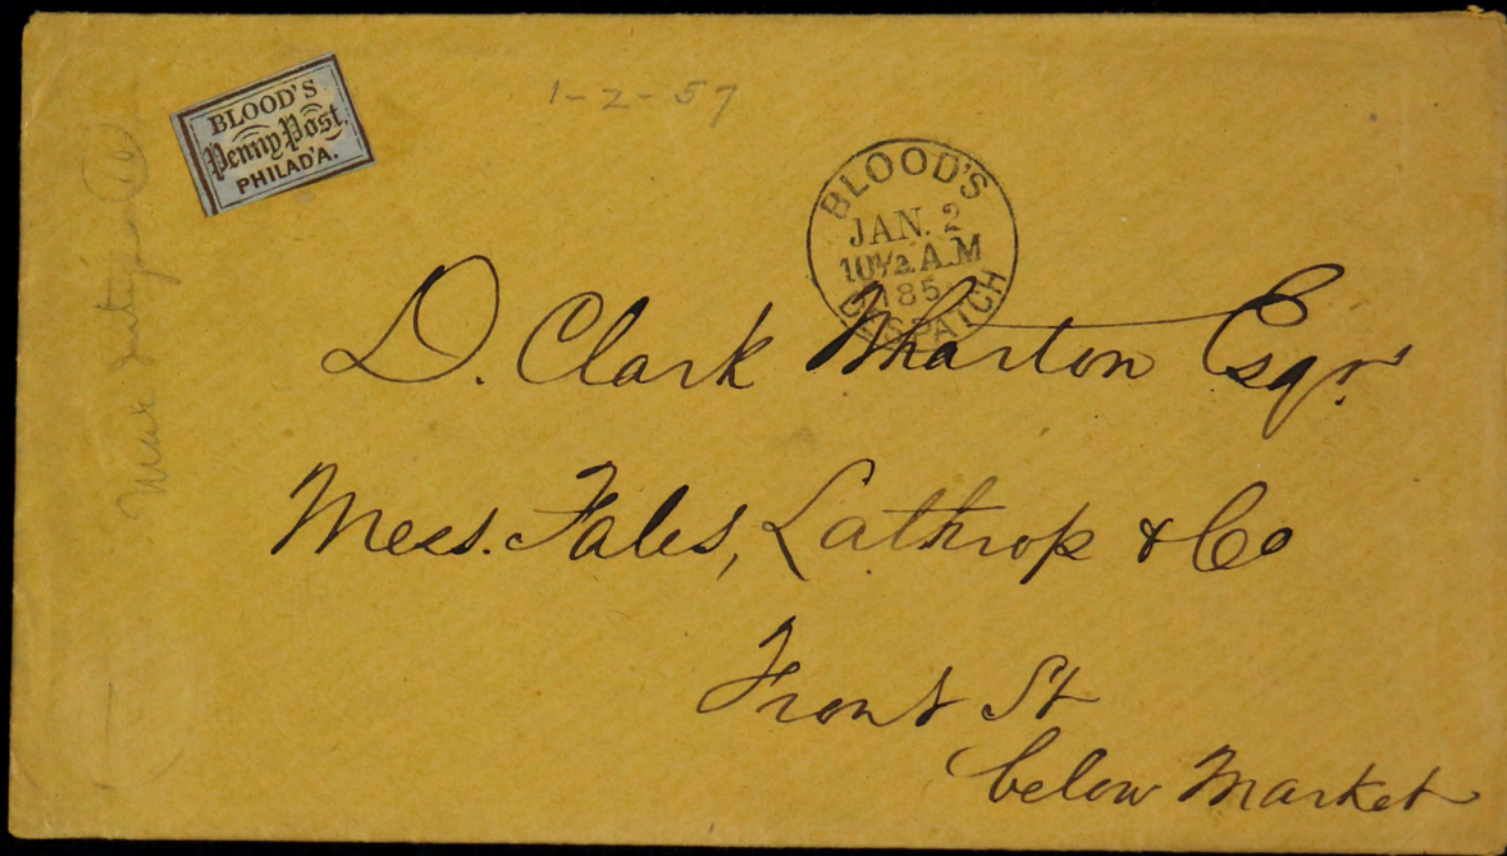 BLOOD'S
Penny Post,
PHILAD'A.
1-2-57
BLOOD'S
JAN. 2
10½ A.M
185
DESPATCH
D. Clark Wharton Esqr.
Mess. Fales, Lathrop & Co
Front St
below Market